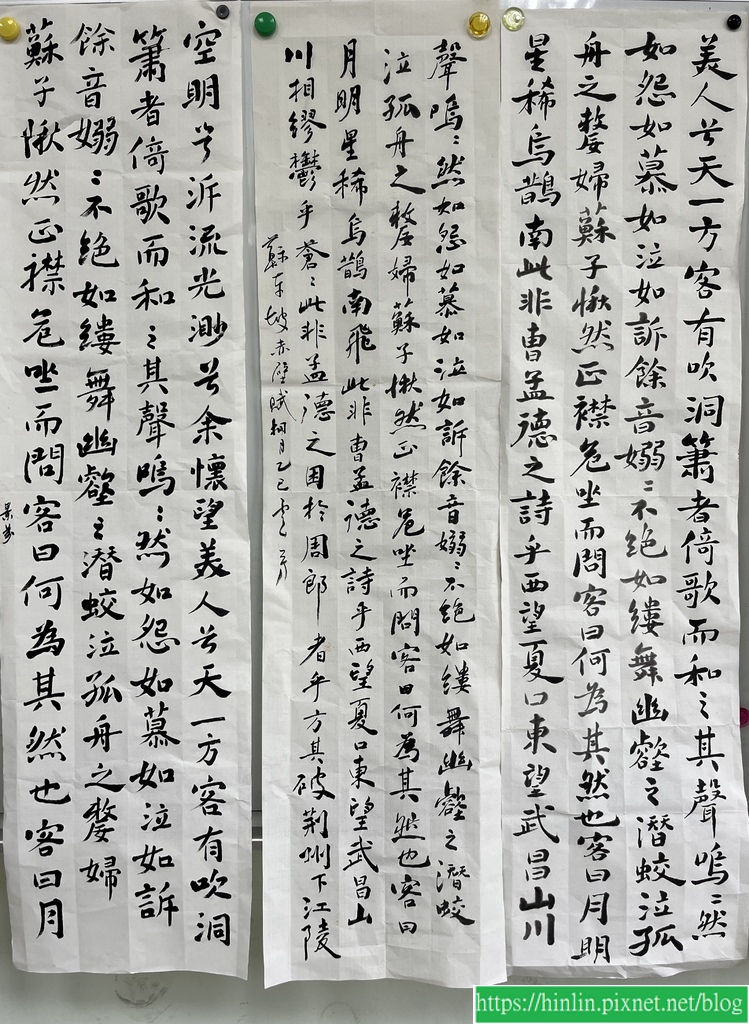 美人兮天一方客有吹洞簫者倚歌而和之其聲嗚〻然
如怨如慕如泣如訴餘音嫋〻不絕如縷舞幽壑之潛蛟泣孤
舟之嫠婦蘇子愀然正襟危坐而問客曰何為其然也客曰月明
星稀烏鵲南此非曹孟德之詩乎西望夏口東望武昌山川
聲嗚〻然如怨如慕如泣如訴餘音嫋〻不絕如縷舞幽壑之潛蛟
泣孤舟之嫠婦蘇子愀然正襟危坐而問客曰何為其然也客曰
月明星稀烏鵲南飛此非曹孟德之詩乎西望夏口東望武昌山
川相繆鬱乎蒼〻此非孟德之困於周郎者乎方其破荊州下江陵
蘇東坡赤壁賦桐月乙巳
空明兮泝流光渺兮余懷望美人兮天一方客有吹洞
簫者倚歌而和之其聲嗚〻然如怨如慕如泣如訴
餘音嫋〻不絕如縷舞幽壑之潛蛟泣孤舟之嫠婦
蘇子愀然正襟危坐而問客曰何為其然也客曰月
https://hinlin.pixnet.net/blog